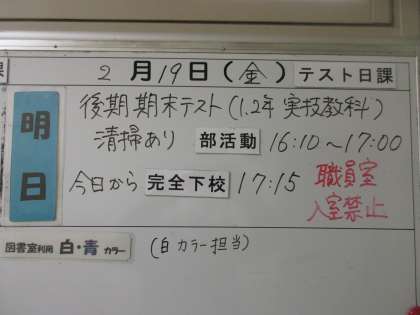 課 2月19日(金) テスト日課
明日
後期期末テスト(1.2年 実技教科)
清掃あり 部活動 16:10~17:00
今日から 完全下校 17:15
職員室
入室禁止
図書室利用 白・青 カラー (白カラー担当)